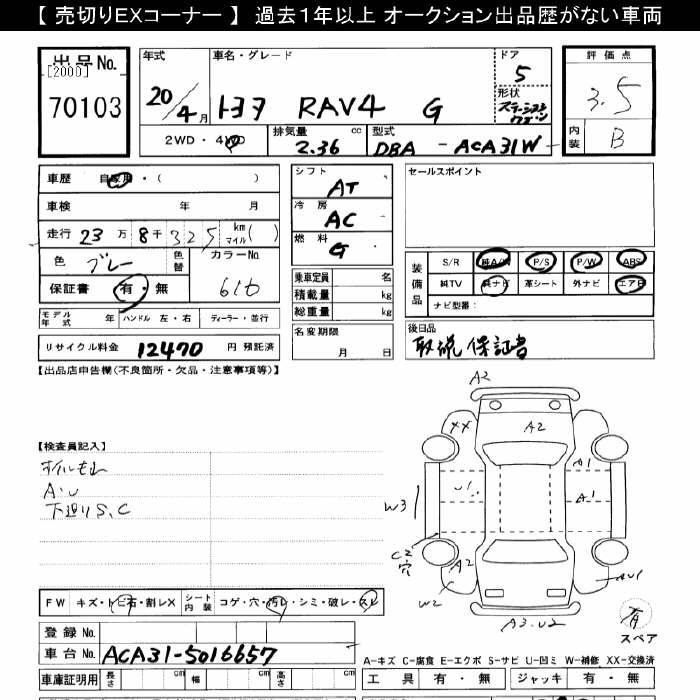 【 売切りEXコーナー 】 過去1年以上 オークション出品歴がない車両
出品No.
[2000]
70103
年式
20/4月
車名・グレード
トヨタ RAV4 G
ドア
5
形状
ステーション
ワゴン
評価点
3.5
内装
B
2WD・4WD
排気量 cc
2.36
型式
DBA - ACA31W
車歴 自家用・( )
車検 年 月
走行 23万 8千 325 km
マイル( )
色 グレー
色替
カラーNo.
616
保証書 有・無
モデル年式 年
ハンドル 左・右
ディーラー・並行
リサイクル料金 12470 円 預託済
シフト
AT
冷房
AC
燃料
G
乗車定員 名
積載量 kg
総重量 kg
名変期限
月 日
セールスポイント
装備品
S/R 純A/W P/S P/W ABS
純TV 純ナビ 革シート 外ナビ エアB
ナビ型番:
後日品
取説 保証書
【出品店申告欄(不良箇所・欠品・注意事項等)】
【検査員記入】
A・U
下廻りS、C
FW キズ・トビ石・割レX
シート内装 コゲ・穴・汚レ・シミ・破レ・スレ
登録 No.
車台 No. ACA31-5016657
車庫証明用 長さ cm 幅 cm 高さ cm
A2
XX
A2
A1
U1
A1
W3
C2
穴
A2
W2
AU1
A3・U2
有
スペア
A-キズ C-腐食 E-エクボ S-サビ U-凹ミ W-補修 XX-交換済
工具 有・無 ジャッキ 有・無